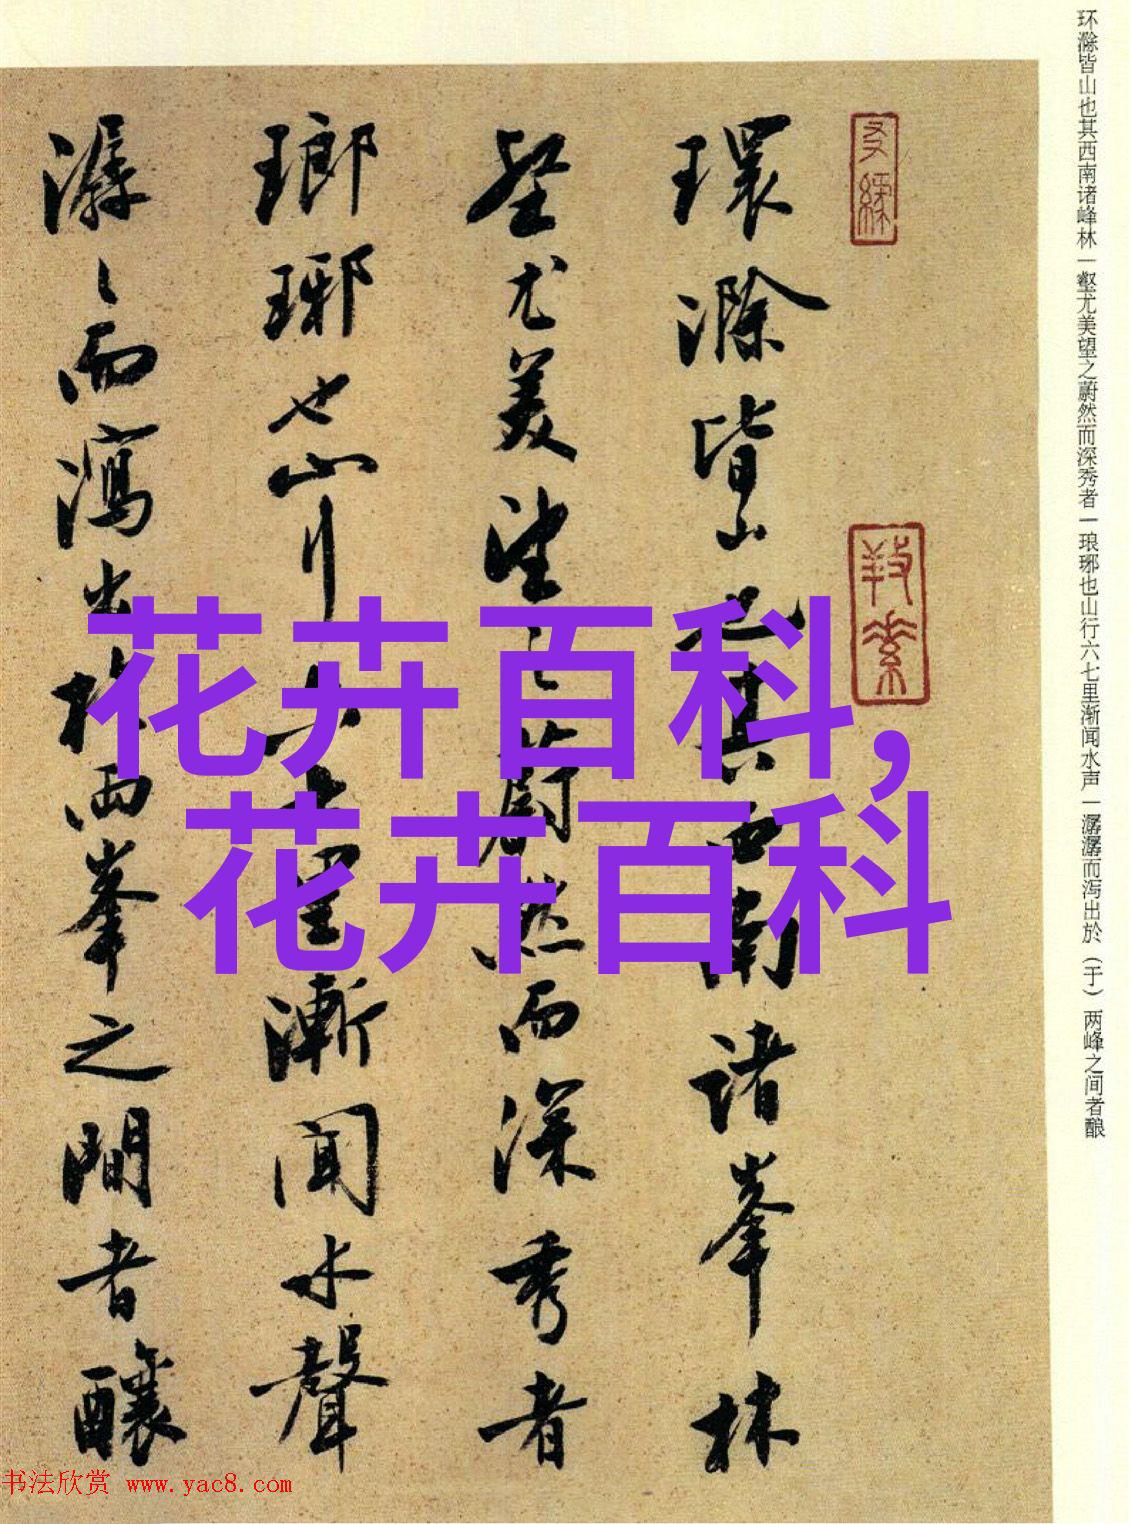 环滁皆山也其西南诸峰林一壑尤美望之蔚然而深秀者一琅琊也山行六七里渐闻水声一潺潺而泻出於（于）两峰之间者酿
環滁皆山也其西南諸峯林
壑尤美望之蔚然而深秀者
瑯琊也山行六七里漸聞水聲
潺〻而瀉出於兩峯之間者釀
花卉百科,
花卉百科
书法欣赏 www.yac8.com